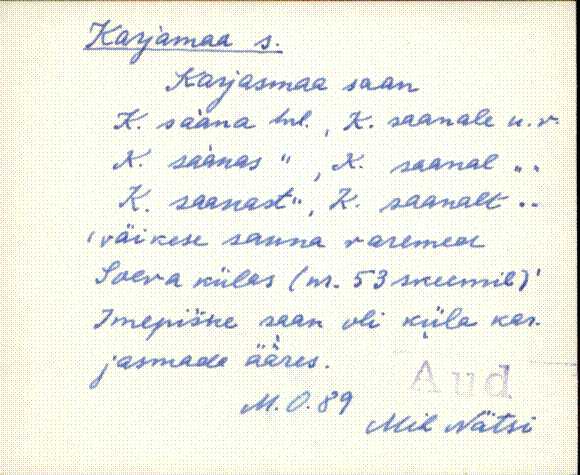 Karjamaa s.
Karjasmaa saan
K. saàna hrl., K. saanale u. v.
K. saànas ", K. saanal "..
K. saanast", K. saanalt "..
'väikese sauna varemed
Soeva külas (nr. 53 skeemil)'
Imepiške saan oli küla kar-
jasmade ääres.
M. O. 89
Aud
Mil Nätsi